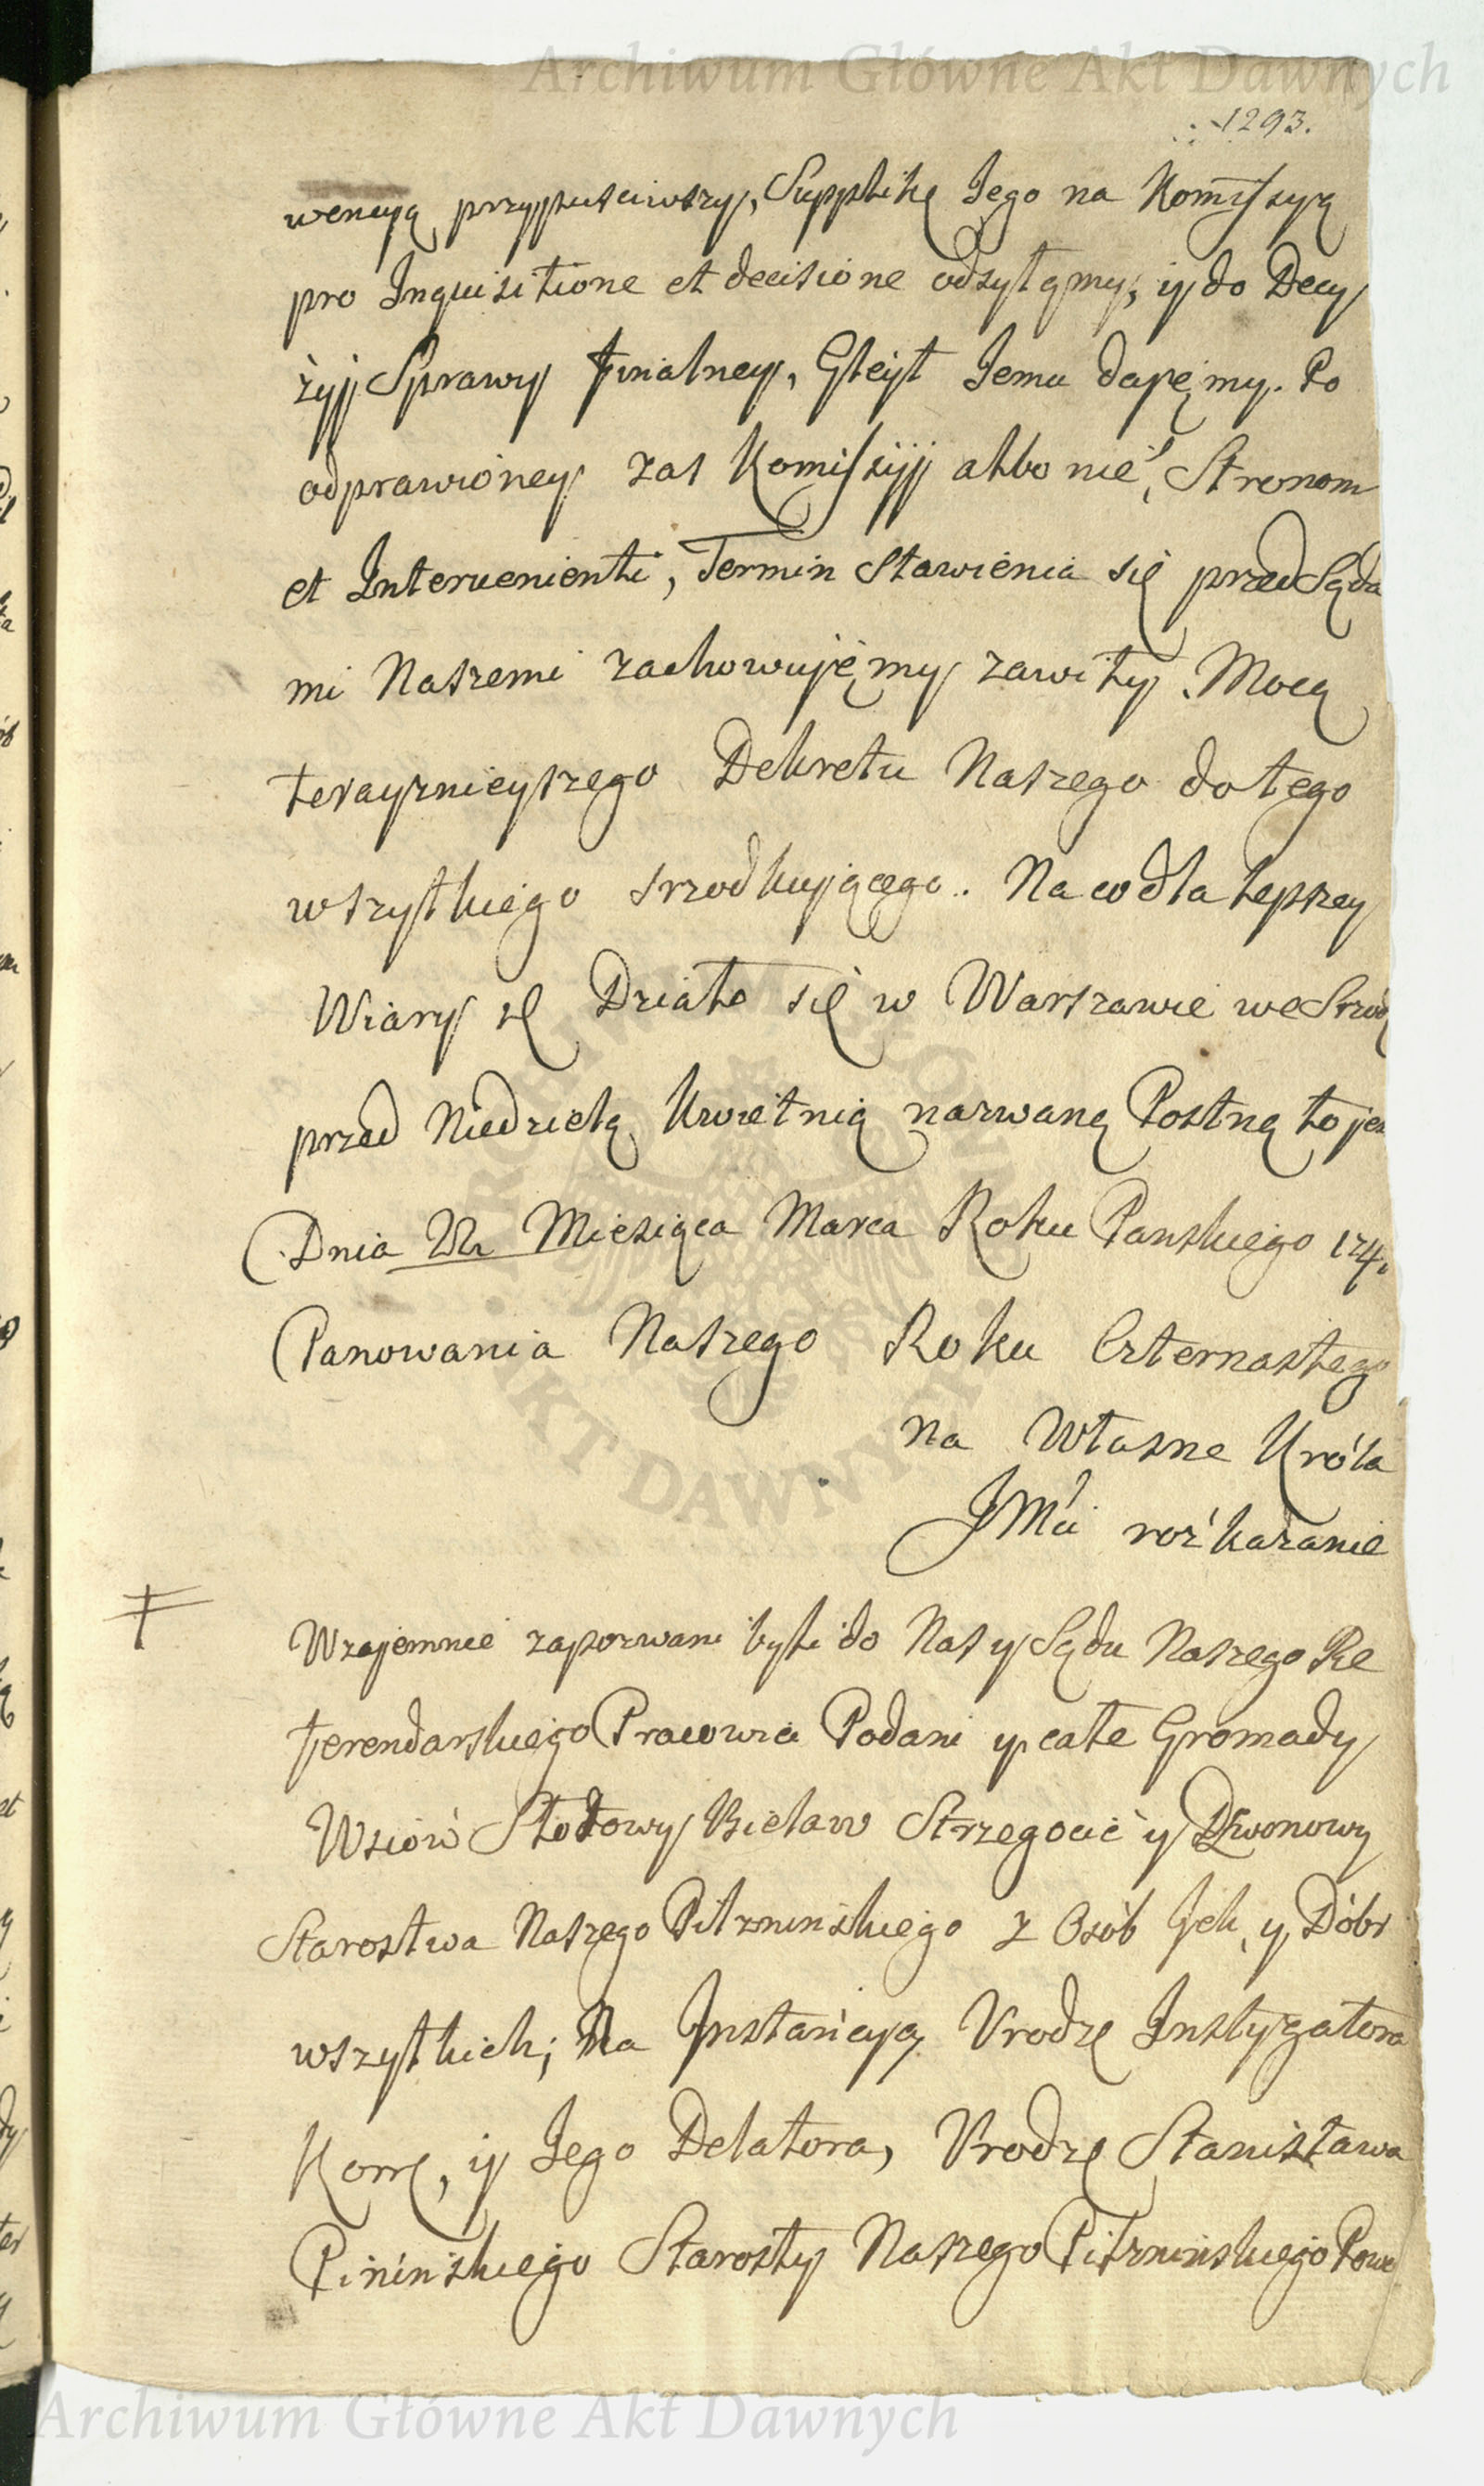 Archiwum Główne Akt Dawnych
1293.
wencyą przypusciwszy, Supplikę Jego na Komissyą
pro Inquisitione et decisione odsyłamy, y do Decy
zyj Sprawy finalney, Gleyt Jemu dajęmy. Po
odprawioney zas Komissyj albo nie, Stronom
et Intervenienti, Termin Stawienia się przed Sąda
mi Naszemi zachowujęmy zawity. Mocą
terayznieyszego Dekretu Naszego do tego
wszytkiego srzodkującego.. Na co dla lepszey
Wiary etc Działo się w Warszawie we Srzodę
przed Niedzielą Kwietnią nazwaną Postną to jes
Dnia 22 Miesiąca Marca Roku Panskiego 174.
Panowania Naszego Roku Czternastego
na Własne Króla
JMci rozkazanie
Wzajemnie zapozwani byli do Nas y Sądu Naszego Re
ferendarskiego Pracowici Podani y całe Gromady
Wsiów Słotowy Bielaw Strzegocic y Dzwonowy
Starostwa Naszego Pilznenskiego z Osób Jch, y Dóbr
wszytkich; Na Jnstancyą Urodzę Instygatora
Korę, y Jego Delatora, Urodzę Stanisława
Pininskiego Starosty Naszego Pilznenskiego Powo
ARCHIWUM GŁÓWNE AKT DAWNYCH
Archiwum Główne Akt Dawnych